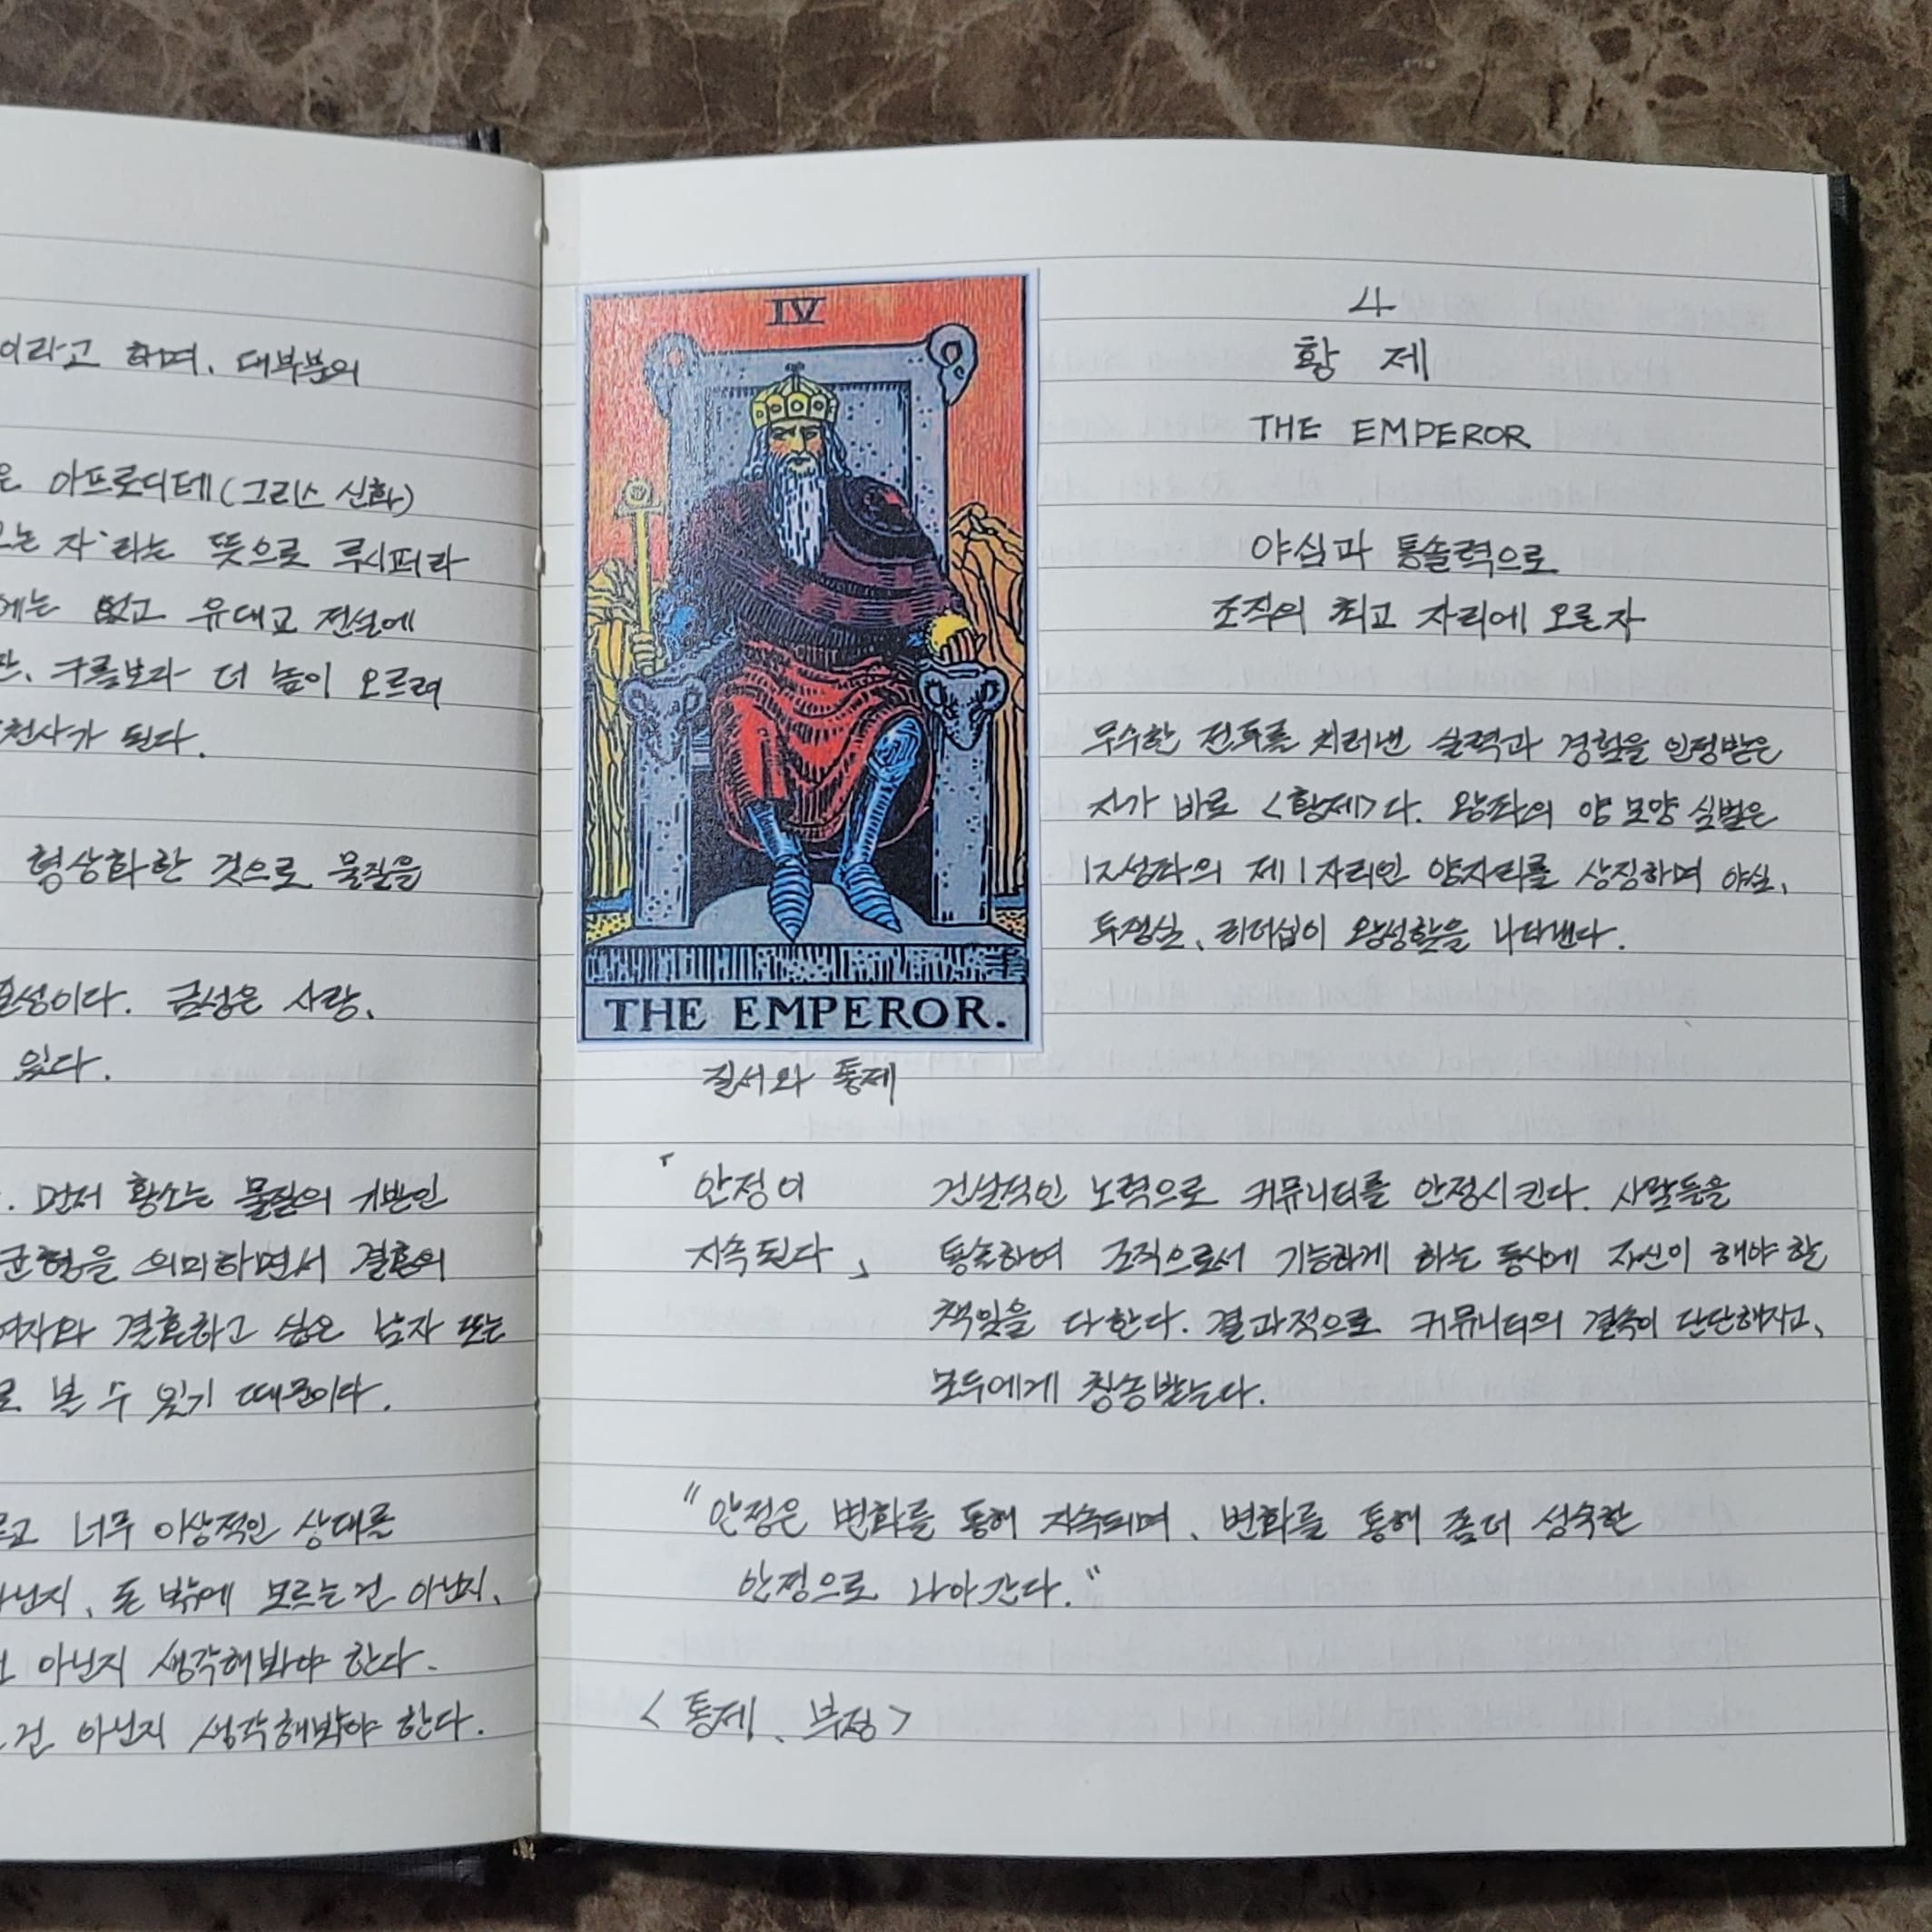 이라고 하며, 대부분의
은 아프로디테(그리스 신화)
오는 자'라는 뜻으로 루시퍼라
에는 없고 유대교 전설에
만, 구름보다 더 높이 오르려
천사가 된다.
형상화한 것으로 물질을
금성은 사랑,
있다.
. 먼저 황소는 물질의 기반인
균형을 의미하면서 결혼의
여자와 결혼하고 싶은 남자 또는
로 볼 수 있기 때문이다.
너무 이상적인 상대를
아닌지, 돈 밖에 모르는 건 아닌지,
아닌지 생각해봐야 한다.
건 아닌지 생각해봐야 한다.
IV
THE EMPEROR.
질서와 통제
4
황 제
THE EMPEROR
야심과 통솔력으로
조직의 최고 자리에 오른 자
무수한 전투를 치러낸 실력과 경험을 인정받은
자가 바로 <황제>다. 왕좌의 양 모양 심벌은
12성좌의 제1자리인 양자리를 상징하며 야심,
투쟁심, 리더십이 왕성함을 나타낸다.
「안정이
지속된다」
건설적인 노력으로 커뮤니티를 안정시킨다. 사람들을
통솔하여 조직으로서 기능하게 하는 동시에 자신이 해야 할
책임을 다한다. 결과적으로 커뮤니티의 결속이 단단해지고,
모두에게 칭송받는다.
"안정은 변화를 통해 지속되며, 변화를 통해 좀더 성숙한
안정으로 나아간다."
<통제, 부정>